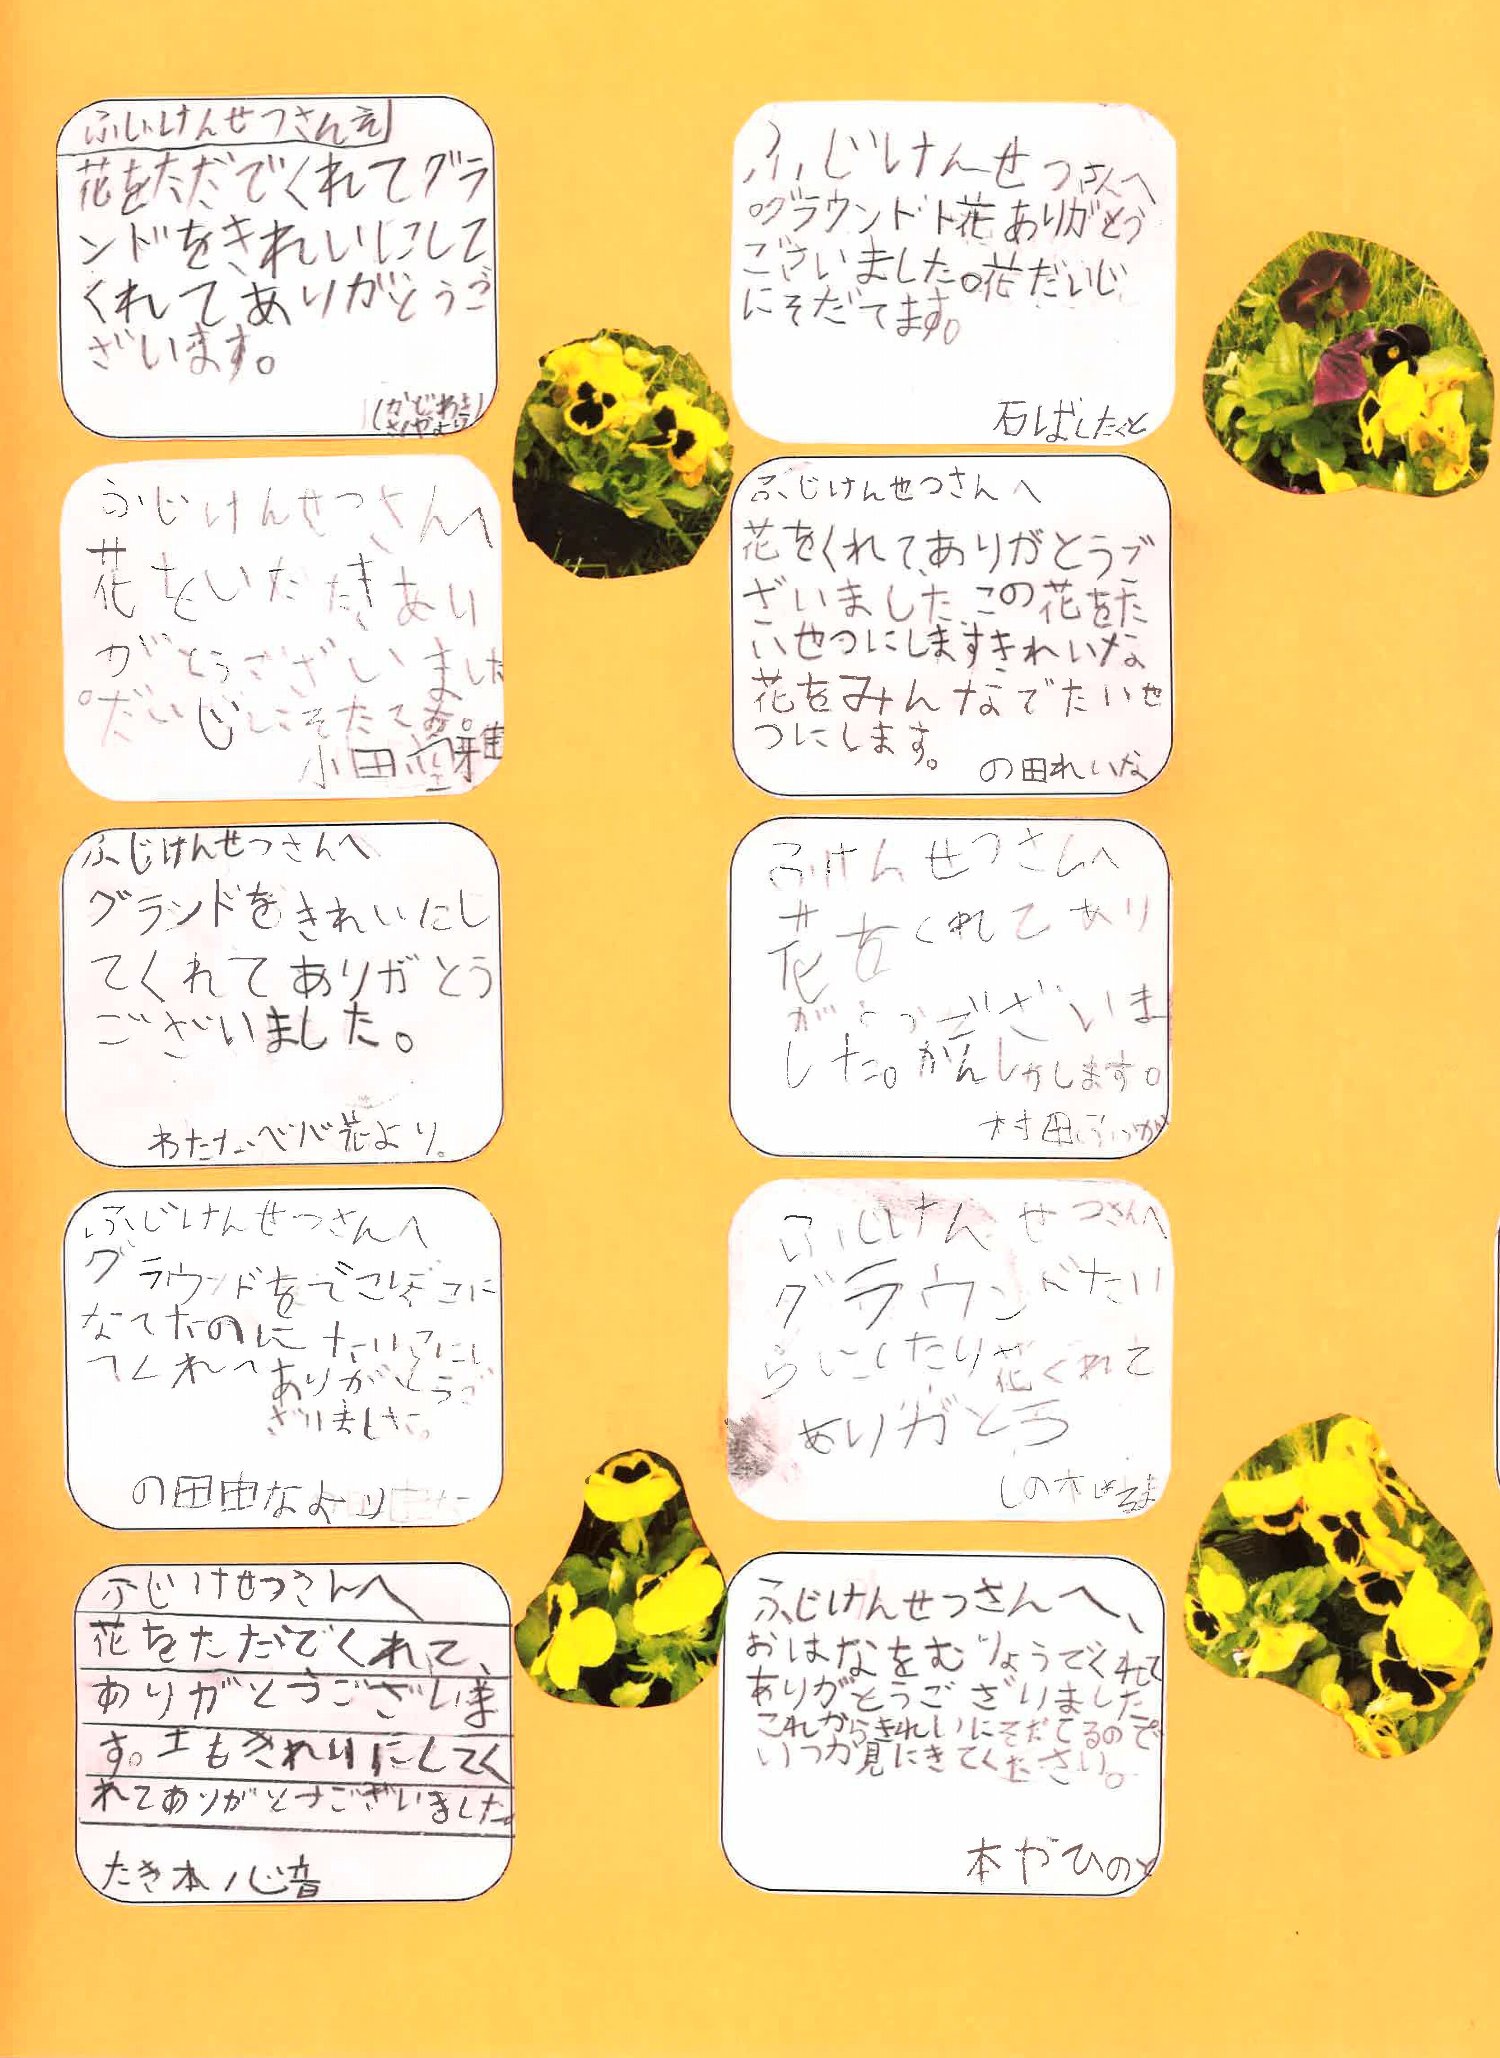 ふじけんせつさんえ
花をただでくれてグラ
ンドをきれいにして
くれてありがとうご
ざいます。
ふじけんせつさんへ
花をいただきあり
がとうございました
。だいじにそだてます。
小田
ふじけんせつさんへ
グランドをきれいにし
てくれてありがとう
ございました。
花より。
ふじけんせつさんへ
グラウンドをでこぼこに
なてたのにたいらにし
てくれてありがとうご
ざりました。
の田由なより
ふじけせつさんへ
花をただでくれて、
ありがとうございま
す。土もきれいにしてく
れてありがとうございました
たき本心音
ふじけんせつさんへ
グラウンドト花ありがとう
ございました。花だいじ
にそだてます。
石ばしたくと
ふじけんせつさんへ
花をくれて、ありがとうご
ざいました、この花をた
いせつにしますきれいな
花をみんなでたいせ
つにします。
の田れいな
ふけんせつさんへ
花をくれてあり
がとうございま
した。かんしゃします。
村田
ふじけんせつさんへ
グラウンドたい
らにしたり花くれて
ありがとう
しの木はるま
ふじけんせつさんへ、
おはなをむりょうでくれて
ありがとうござりました
これからきれいにそだてるので
いつか見にきてください。
本やひのと